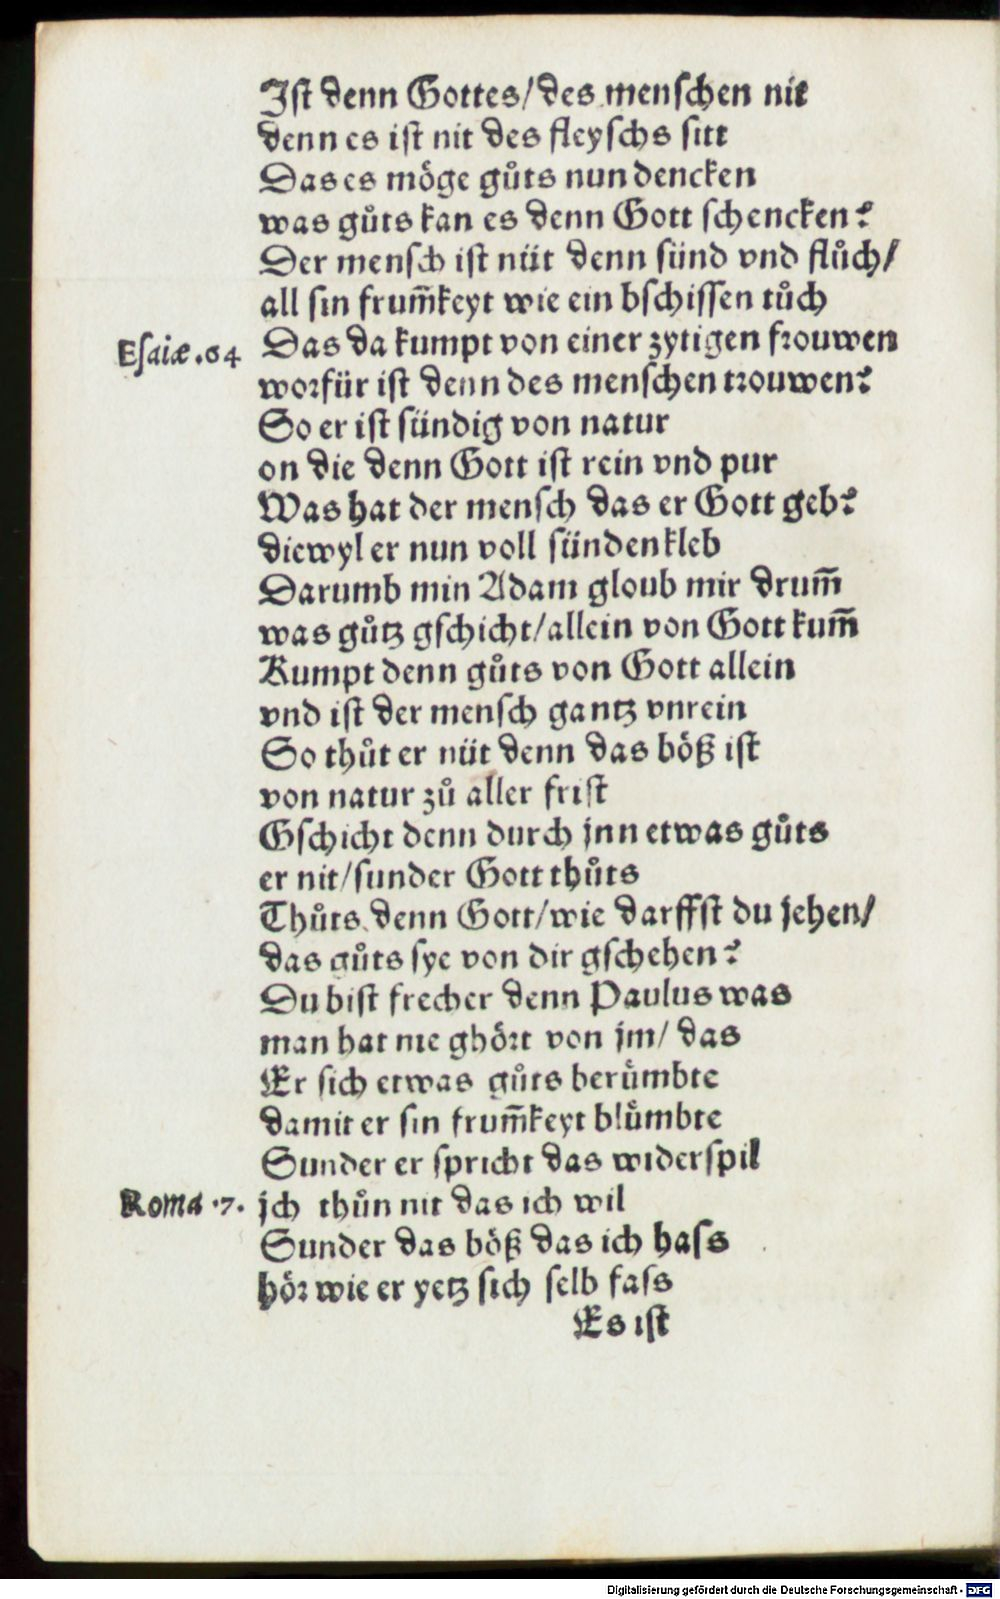 Ist denn Gottes/des menschen nit
denn es ist nit des fleyschs sitt
Das es möge gůts nun dencken
was gůts kan es denn Gott schencken?
Der mensch ist nüt denn sünd vnd flůch/
all sin frum̄keyt wie ein bschissen tůch
Esaiæ .64 Das da kumpt von einer zytigen frouwen
worfür ist denn des menschen trouwen?
So er ist sündig von natur
on die denn Gott ist rein vnd pur
Was hat der mensch das er Gott geb?
diewyl er nun voll sünden kleb
Darumb min Adam gloub mir drum̄
was gůtz gschicht/allein von Gott kum̄
Kumpt denn gůts von Gott allein
vnd ist der mensch gantz vnrein
So thůt er nüt denn das böß ist
von natur zů aller frist
Gschicht denn durch jnn etwas gůts
er nit/sunder Gott thůts
Thůts denn Gott/wie darffst du jehen/
das gůts sye von dir gschehen?
Du bist frecher denn Paulus was
man hat nie ghört von jm/ das
Er sich etwas gůts berümbte
damit er sin frum̄keyt blümbte
Sunder er spricht das widerspil
Roma .7. jch thůn nit das ich wil
Sunder das böß das ich hass
hör wie er yetz sich selb fass
Es ist
Digitalisierung gefördert durch die Deutsche Forschungsgemeinschaft - DFG